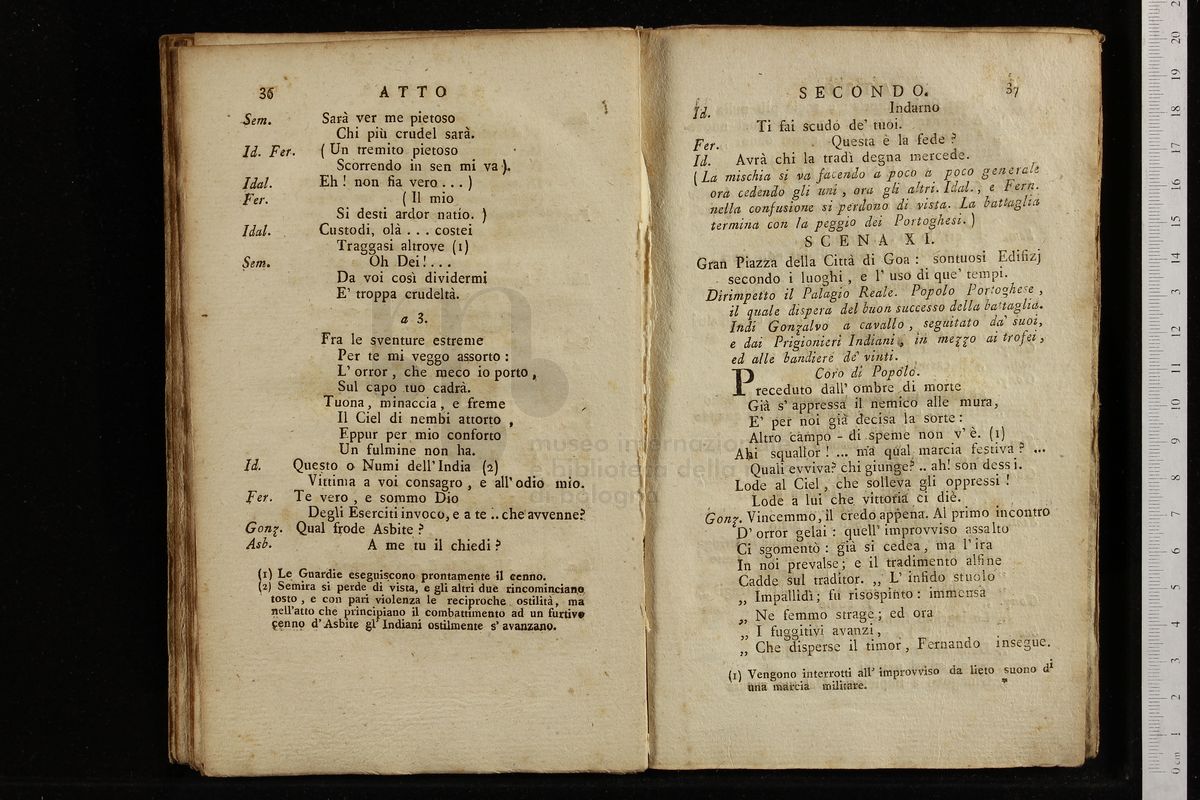 36 ATTO
Sem. Sarà ver me pietoso
Chi più crudel sarà.
Id. Fer. ( Un tremito pietoso
Scorrendo in sen mi va ).
Idal. Eh ! non fia vero . . . )
Fer. ( Il mio
Si desti ardor natío. )
Idal. Custodi, olà . . . costei
Traggasi altrove (1)
Sem. Oh Dei ! . . .
Da voi così dividermi
E' troppa crudeltà.
a 3.
Fra le sventure estreme
Per te mi veggo assorto :
L' orror , che meco io porto ,
Sul capo tuo cadrà.
Tuona, minaccia, e freme
Il Ciel di nembi attorto ,
Eppur per mio conforto
Un fulmine non ha.
Id. Questo o Numi dell' India (2)
Vittima a voi consagro , e all' odio mio.
Fer. Te vero , e sommo Dio
Degli Eserciti invoco, e a te .. che avvenne?
Gonz. Qual frode Asbite ?
Asb. A me tu il chiedi ?
(1) Le Guardie eseguiscono prontamente il cenno.
(2) Semira si perde di vista, e gli altri due rincominciano
tosto , e con pari violenza le reciproche ostilità, ma
nell'atto che principiano il combattimento ad un furtivo
cenno d' Asbite gl' Indiani ostilmente s' avanzano.
SECONDO. 37
Id. Indarno
Ti fai scudo de' tuoi.
Fer. Questa è la fede ?
Id. Avrà chi la tradì degna mercede.
( La mischia si va facendo a poco a poco generale
ora cedendo gli uni , ora gli altri. Idal., e Fern.
nella confusione si perdono di vista. La battaglia
termina con la peggio dei Portoghesi. )
SCENA XI.
Gran Piazza della Città di Goa : sontuosi Edifizj
secondo i luoghi , e l' uso di que' tempi.
Dirimpetto il Palagio Reale. Popolo Portoghese ,
il quale dispera del buon successo della battaglia.
Indi Gonzalvo a cavallo , seguitato da' suoi,
e dai Prigionieri Indiani , in mezzo ai trofei ,
ed alle bandiere de' vinti.
Coro di Popolo.
Preceduto dall' ombre di morte
Già s' appressa il nemico alle mura,
E' per noi già decisa la sorte :
Altro campo - di speme non v' è. (1)
Ahi squallor ! ... ma qual marcia festiva ? ...
Quali evviva? chi giunge? .. ah! son dessi.
Lode al Ciel , che solleva gli oppressi !
Lode a lui che vittoria ci diè.
Gonz. Vincemmo, il credo appena. Al primo incontro
D' orror gelai : quell' improvviso assalto
Ci sgomentò : già si cedea , ma l' ira
In noi prevalse ; e il tradimento alfine
Cadde sul traditor. ,, L' infido stuolo
,, Impallidì ; fu risospinto : immensa
,, Ne femmo strage ; ed ora
,, I fuggitivi avanzi ,
,, Che disperse il timor , Fernando insegue.
(1) Vengono interrotti all' improvviso da lieto suono di
una marcia militare.
museo internazionale
e biblioteca della
di bologna